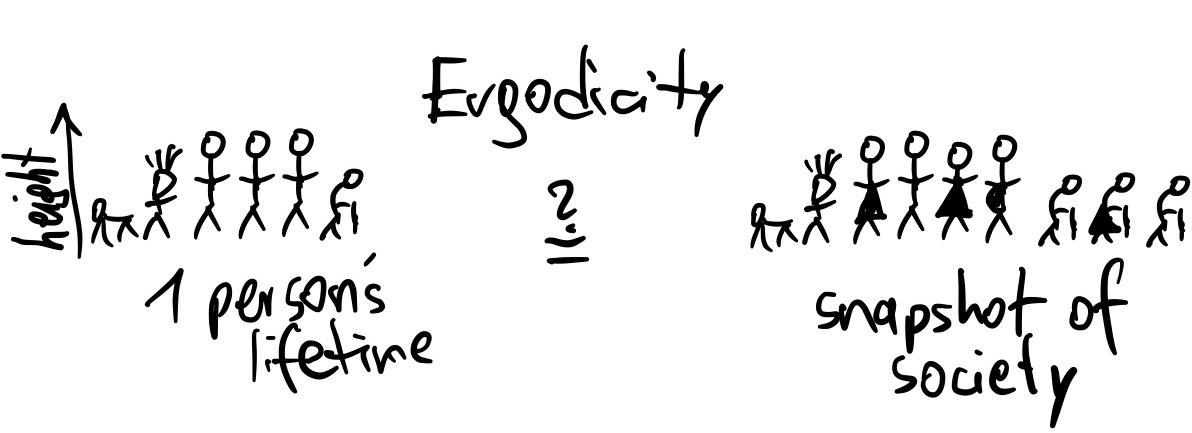 Ergodicity
height
?
=
1 person's
lifetime
snapshot of
society